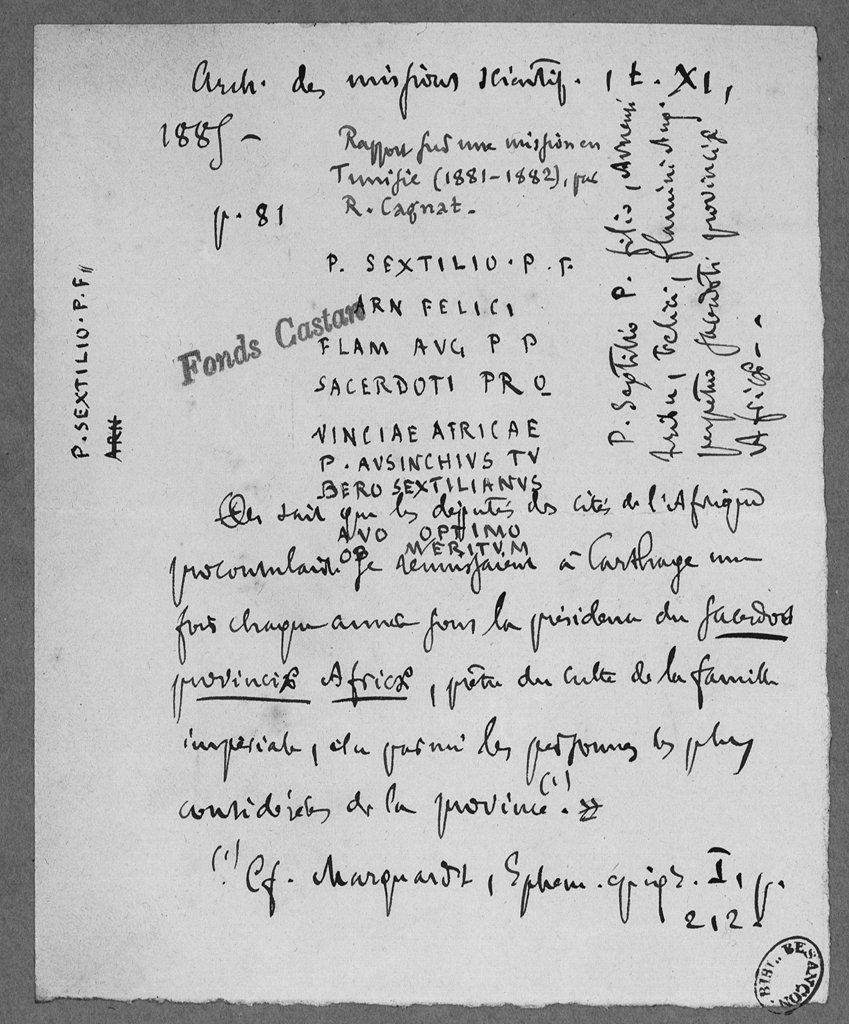 Arch. des missions scientif., t. XI,
1885 –
Rapport sur une mission en
Tunisie (1881-1882), par
R. Cagnat.
p. 81
P. SEXTILIO. P. F.
ARN FELICI
FLAM AVG P P
SACERDOTI PRO
VINCIAE AFRICAE
P. AVSINCHIVS TV
BERO SEXTILIANVS
AVO OPTIMO
OB MERITVM
On sait que les députés des cités de l'Afrique
proconsulaire se réunissaient à Carthage une
fois chaque année sous la présidence du sacerdos
provinciæ Africæ, prêtre du culte de la famille
impériale, élu parmi les personnes les plus
considérées de la province (1). »
(1) Cf. Marquardt, Ephem. epigr. I, p.
212.
P. SEXTILIO. P. F.
ARN
P. Sextilio P. filio, Arnensi
tribu, Felici, flamini Aug.
perpetuo sacerdoti provinciæ
Africæ - -
Fonds Castan
BIBL. BESANÇON